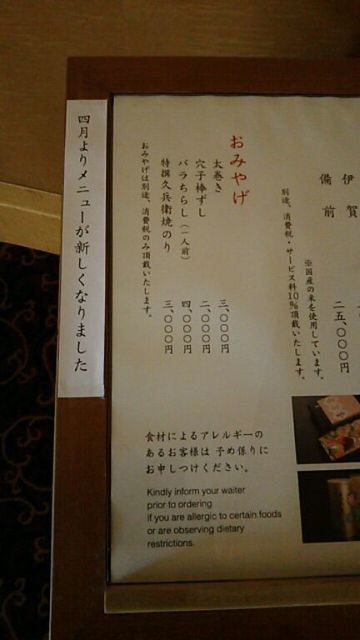 伊賀
備前
二五、〇〇〇円
※国産の米を使用しています。
別途、消費税・サービス料10%頂戴いたします。
おみやげ
太巻き 三、〇〇〇円
穴子棒ずし 二、〇〇〇円
バラちらし(一人前) 四、〇〇〇円
特撰久兵衛焼のり 三、〇〇〇円
おみやげは別途、消費税のみ頂戴いたします。
四月よりメニューが新しくなりました
食材によるアレルギーの
あるお客様は 予め係りに
お申しつけください。
Kindly inform your waiter
prior to ordering
if you are allergic to certain foods
or are observing dietary
restrictions.